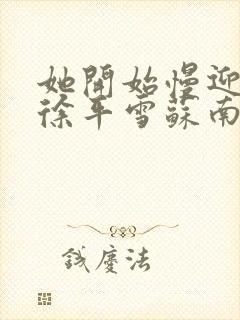 她開始慢迎
徐平雪蘇南
錢慶法